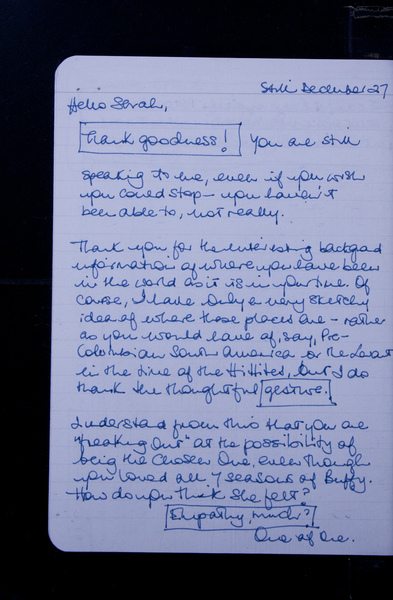 Still December 27
Hello Sarah,
Thank goodness! You are still
speaking to me, even if you wish
you could stop – you haven't
been able to, not really.
Thank you for the interesting backgad
information of where you have been
in the world as it is in your time. Of
course, I have only a very sketchy
idea of where those places are – rather
as you would have of, say, Pre-
Colombian South America or the Levant
in the time of the Hittites, but I do
thank the thoughtful gesture.
I understand from this that you are
"freaking out" at the possibility of
being the Chosen One, even though
you loved all 7 seasons of Buffy.
How do you think she felt?
Empathy, much?
One of One.